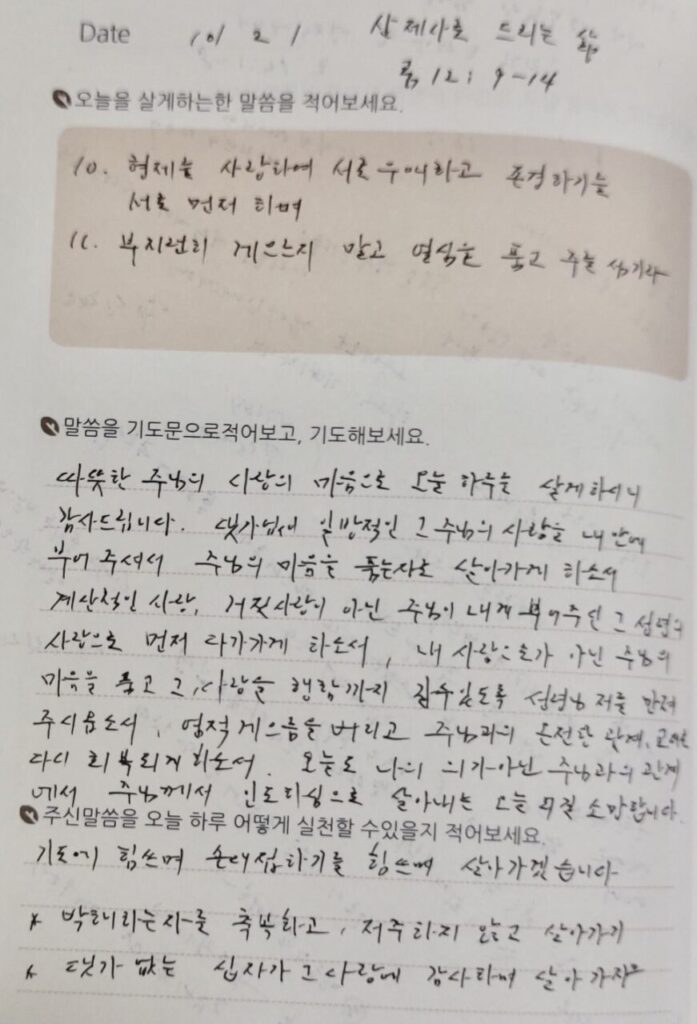 Date 10/ 21 산 제사로 드리는 삶
롬 12 : 9-14
오늘을 살게하는한 말씀을 적어보세요.
10. 형제를 사랑하여 서로 우애하고 존경하기를
서로 먼저 하며
11. 부지런히 게으르지 말고 열심을 품고 주를 섬기라
말씀을 기도문으로적어보고, 기도해보세요.
따뜻한 주님의 사랑의 마음으로 오늘 하루를 살게하시니
감사드립니다. 댓가없새 일방적인 그 주님의 사랑을 내 안에
부어 주셔서 주님의 마음을 품는자로 살아가게 하소서
계산적인 사랑, 거짓사랑이 아닌 주님이 내게 부어주신 그
사랑으로 먼저 다가가게 하소서, 내 사랑으로가 아닌 주님의
마음을 품고 그 사랑을 행함까지 갈수있도록 성령님 저를 만져
주시옵소서, 영적게으름을 버리고 주님과의 온전한 관계, 교제로
다시 회복되게 하소서. 오늘도 나의 의가아닌 주님과의 관계
에서 주님께서 인도하심으로 살아내는 오늘 되길 소망합니다.
주신말씀을 오늘 하루 어떻게 실천할 수있을지 적어보세요.
기도에 힘쓰며 손대접하기를 힘쓰며 살아가겠습니다
* 박해하는자를 축복하고, 저주하지 않고 살아가기
* 댓가 없는 십자가 그 사랑에 감사하며 살아가자